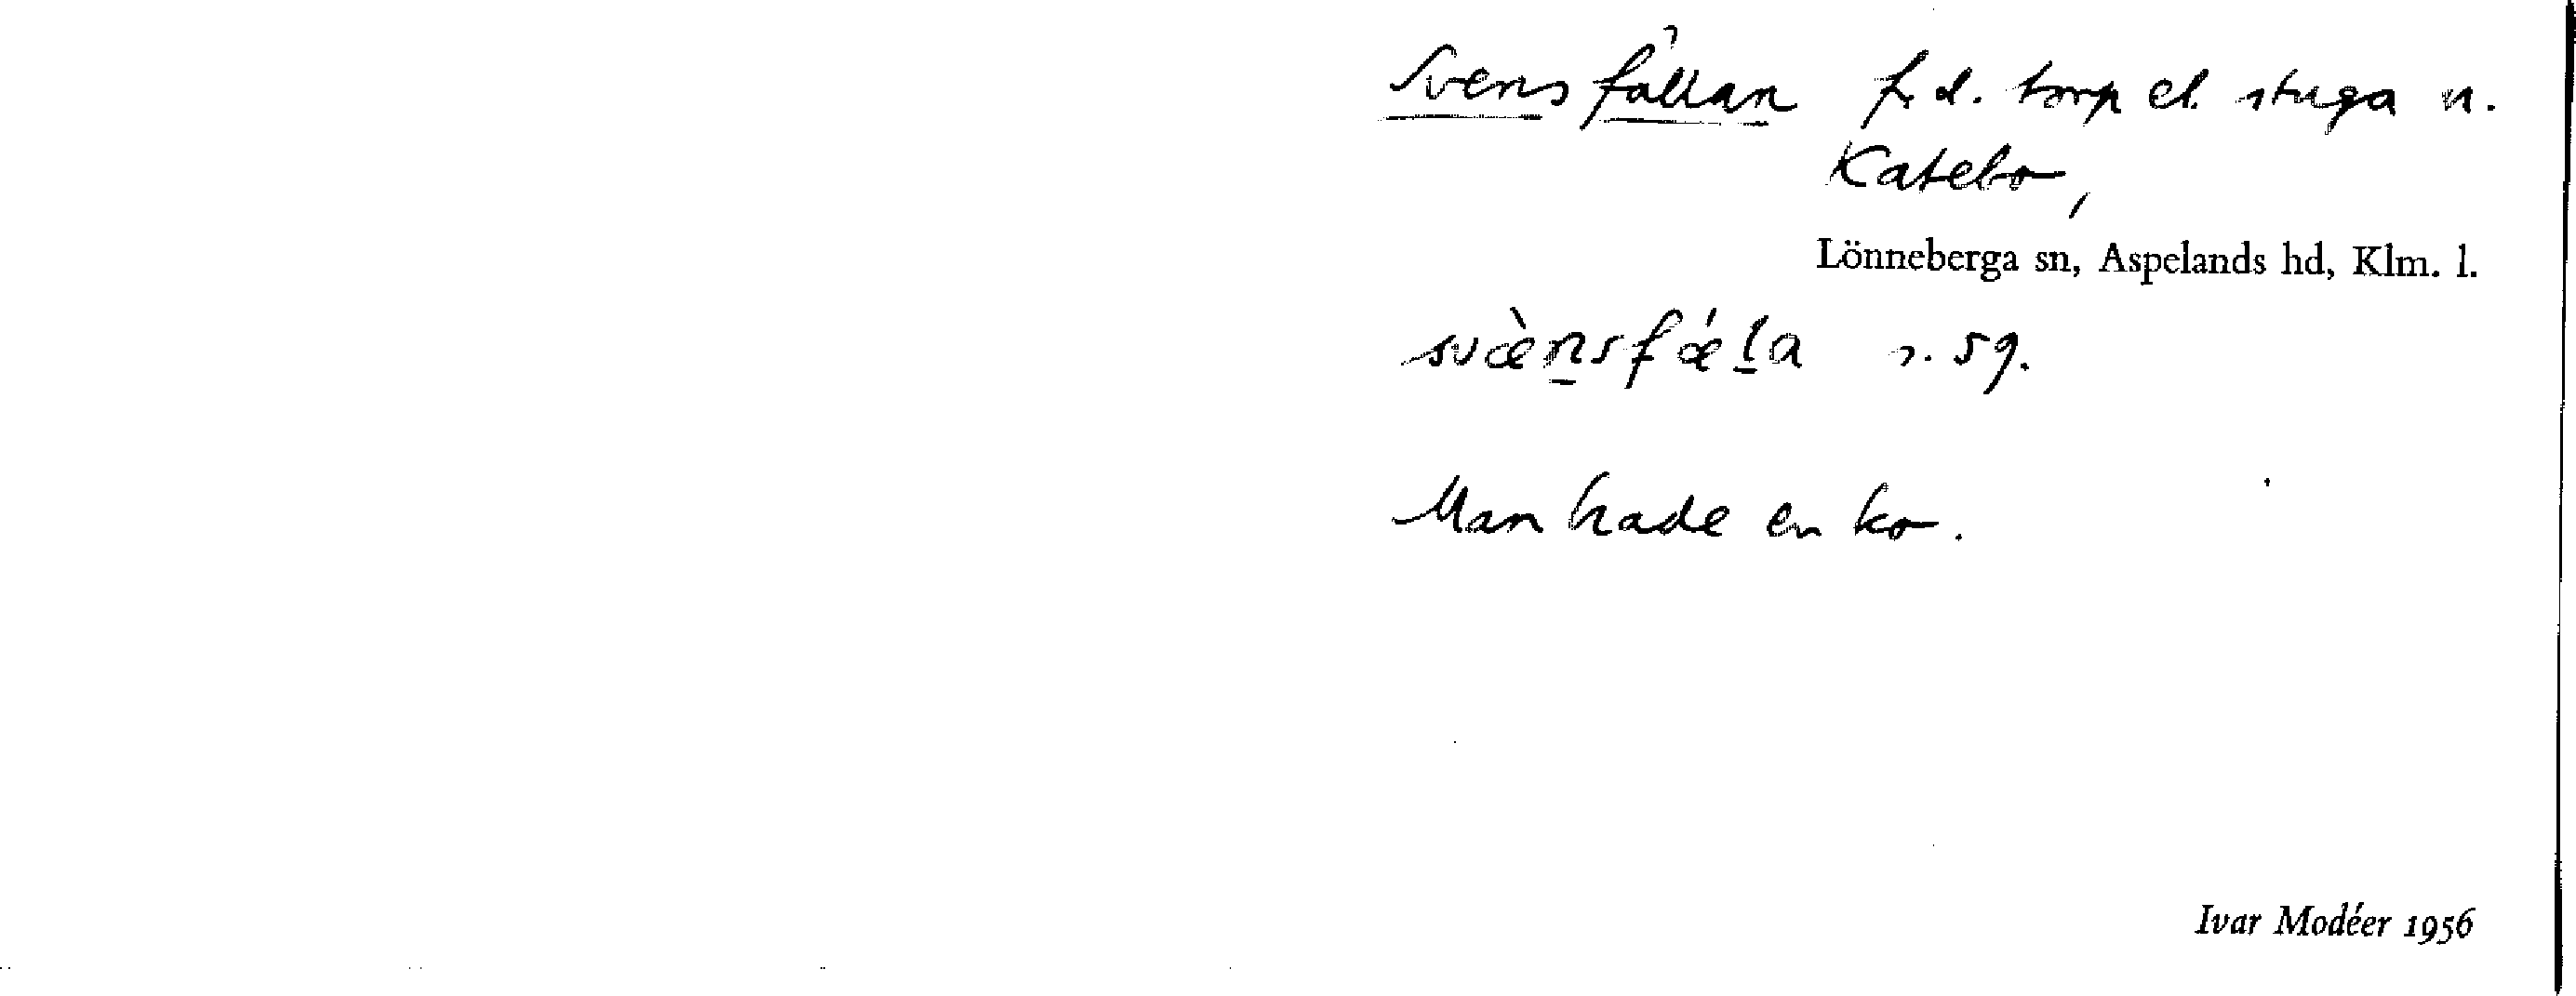 Svensfällan f. d. torp el. stuga n.
Katebo,
Lönneberga sn, Aspelands hd, Klm. l.
svæ̀n̲sfǽl̲a r. 59.
Man hade en ko.
Ivar Modéer 1956